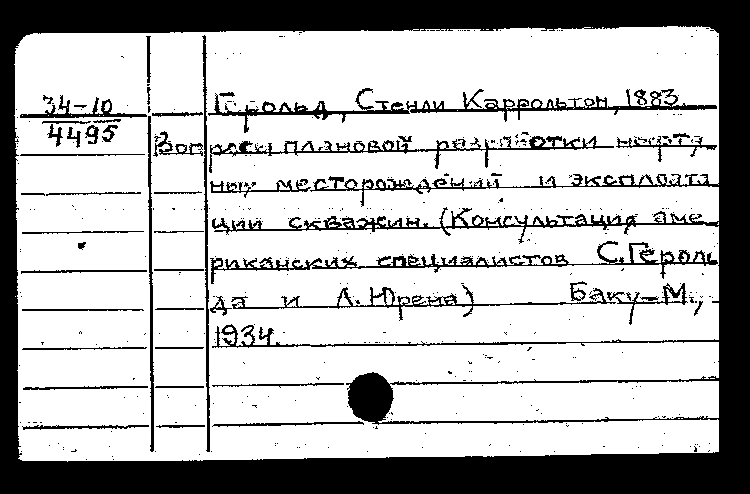 34-10
4495
Герольд, Стенли Каррольтон, 1883.
Вопросы плановой разработки нефтя-
ных месторождений и эксплоата
ции скважин. (Консультация аме-
риканских специалистов С.Героль
да и Л. Юрена) Баку-М.,
1934.